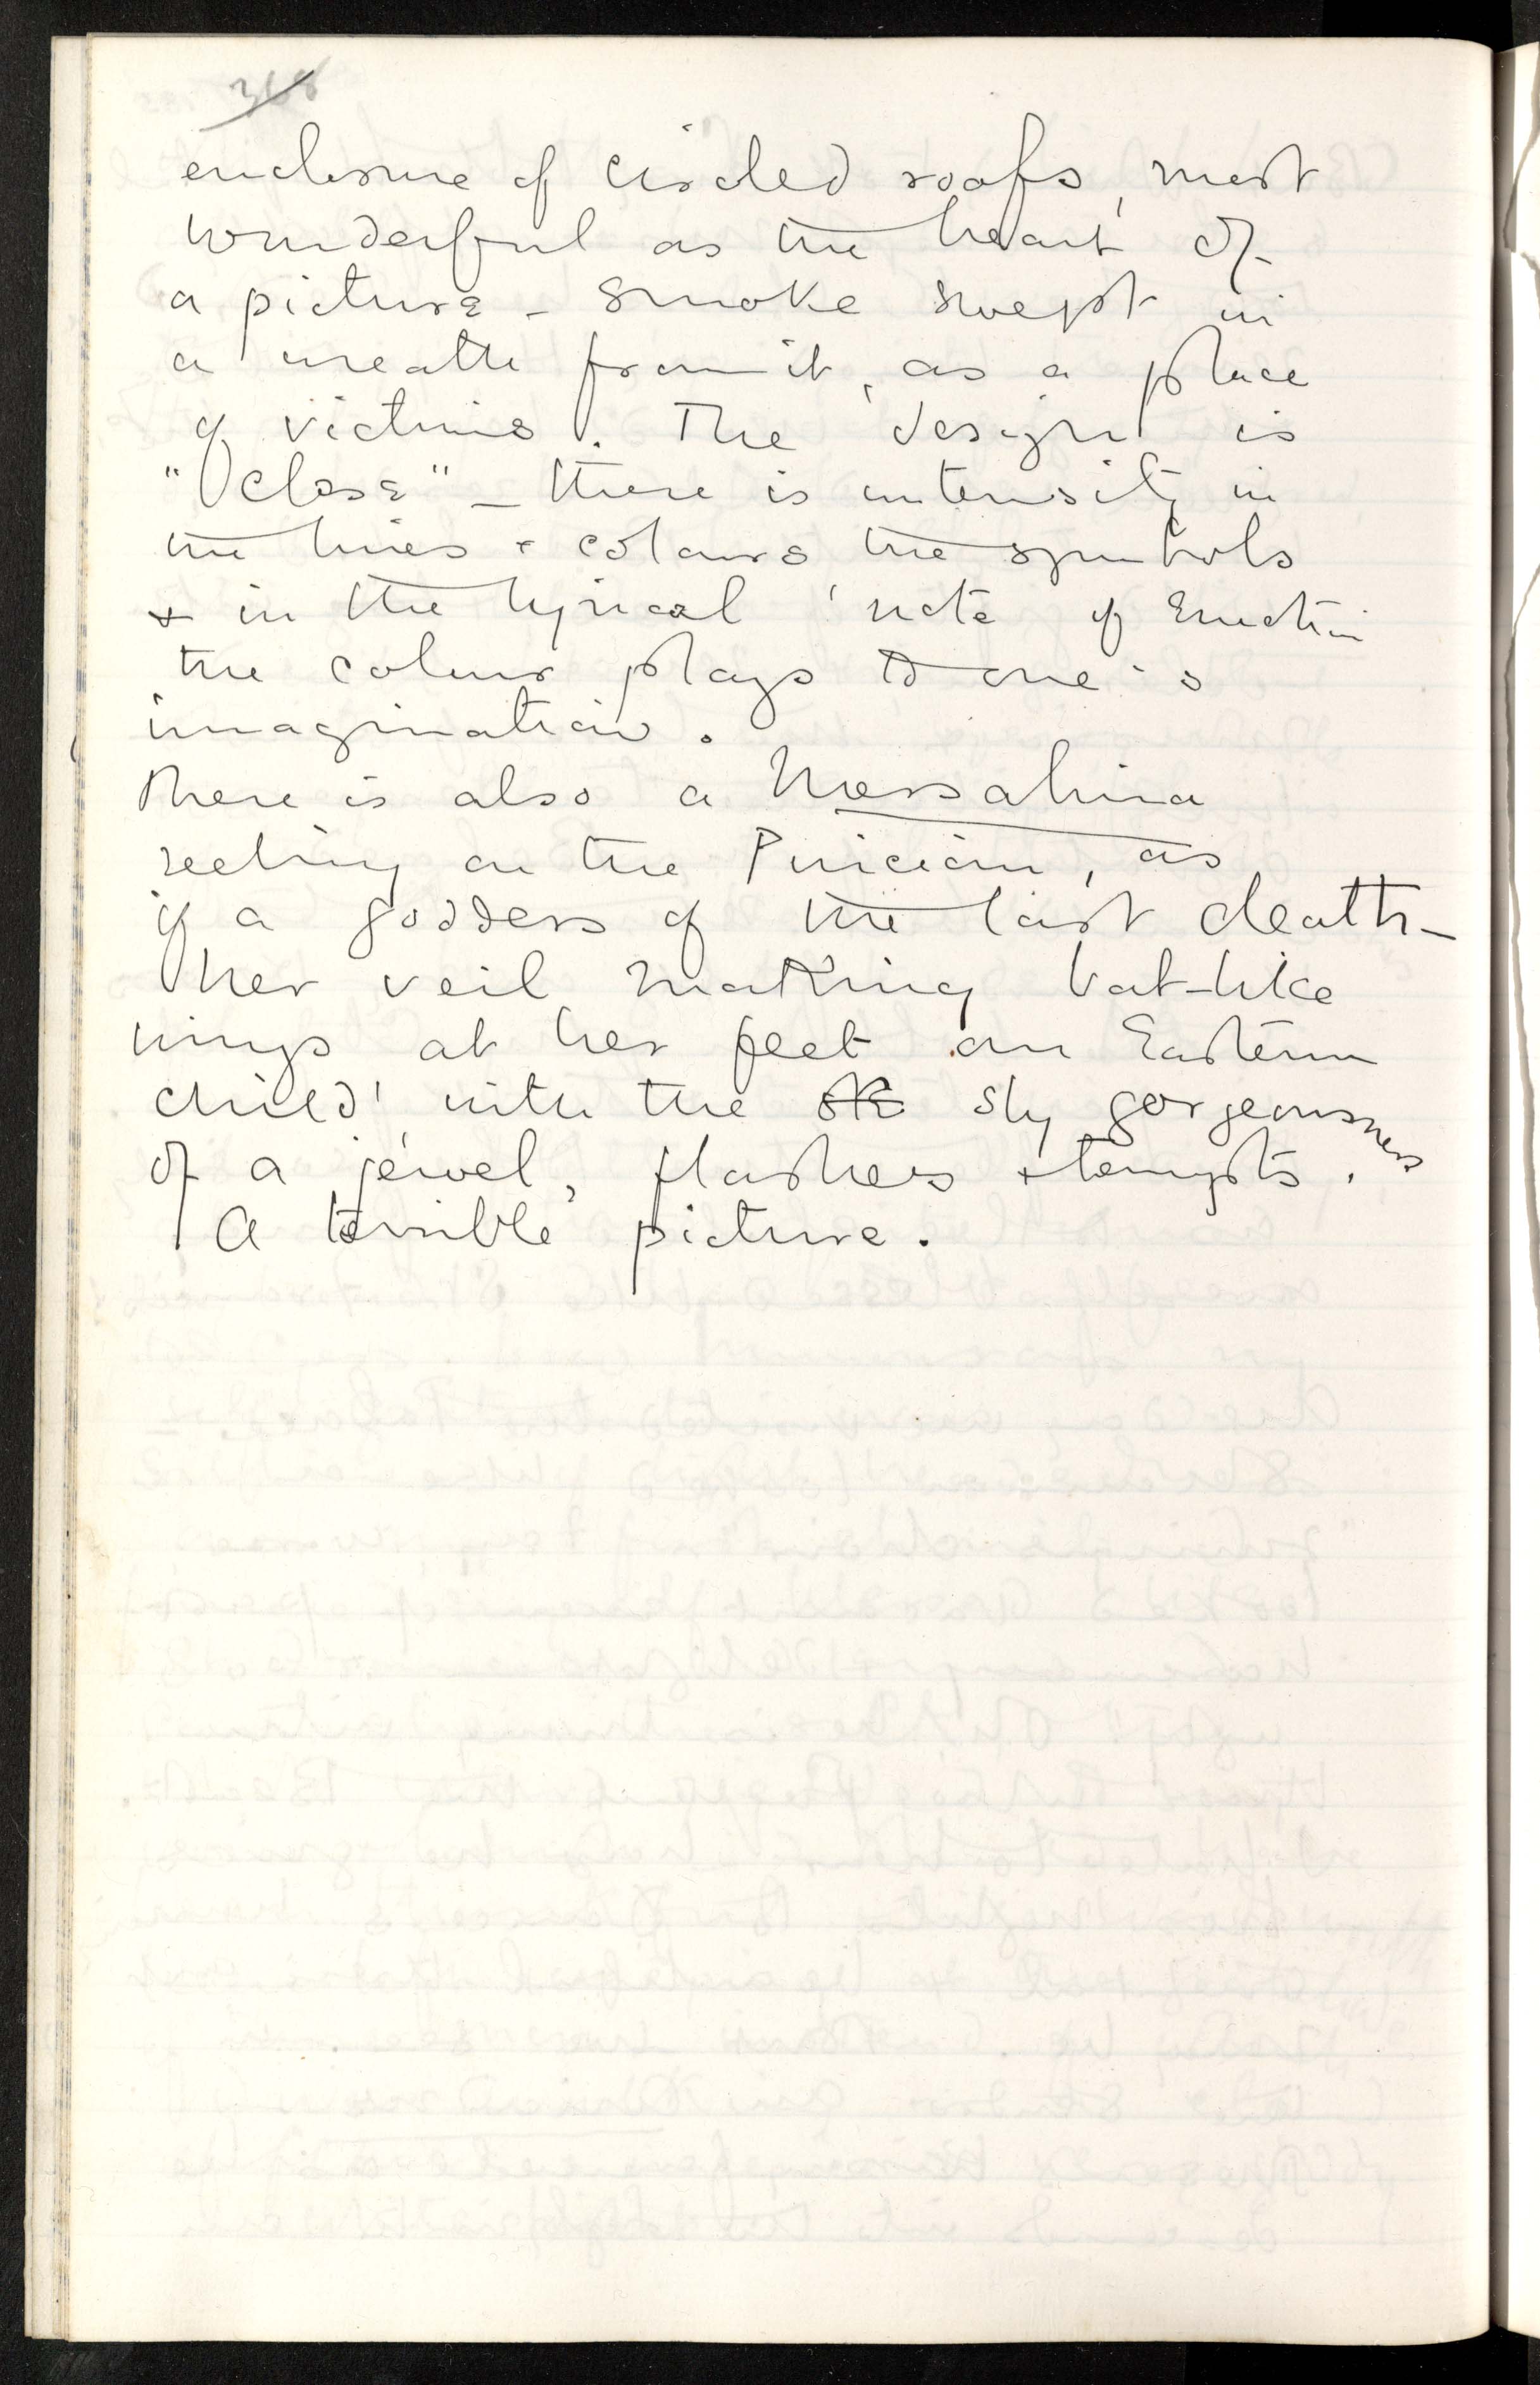 enclosure of circled roofs, most
wonderful as the heart of
a picture - smoke swept in
a wreath from it, as a place
of victims. The design is
"close" - there is intensity in
the lines & colours the symbols
& in the lyrical note of emotion
the colour plays to one's
imagination.
There is also a Messalina
reeling on the Pincian, as
if a goddess of the last death -
her veil making bat-like
wings at her feet an Eastern
child with the sly gorgeousness
of a jewel, flashes & tempts.
A terrible picture.